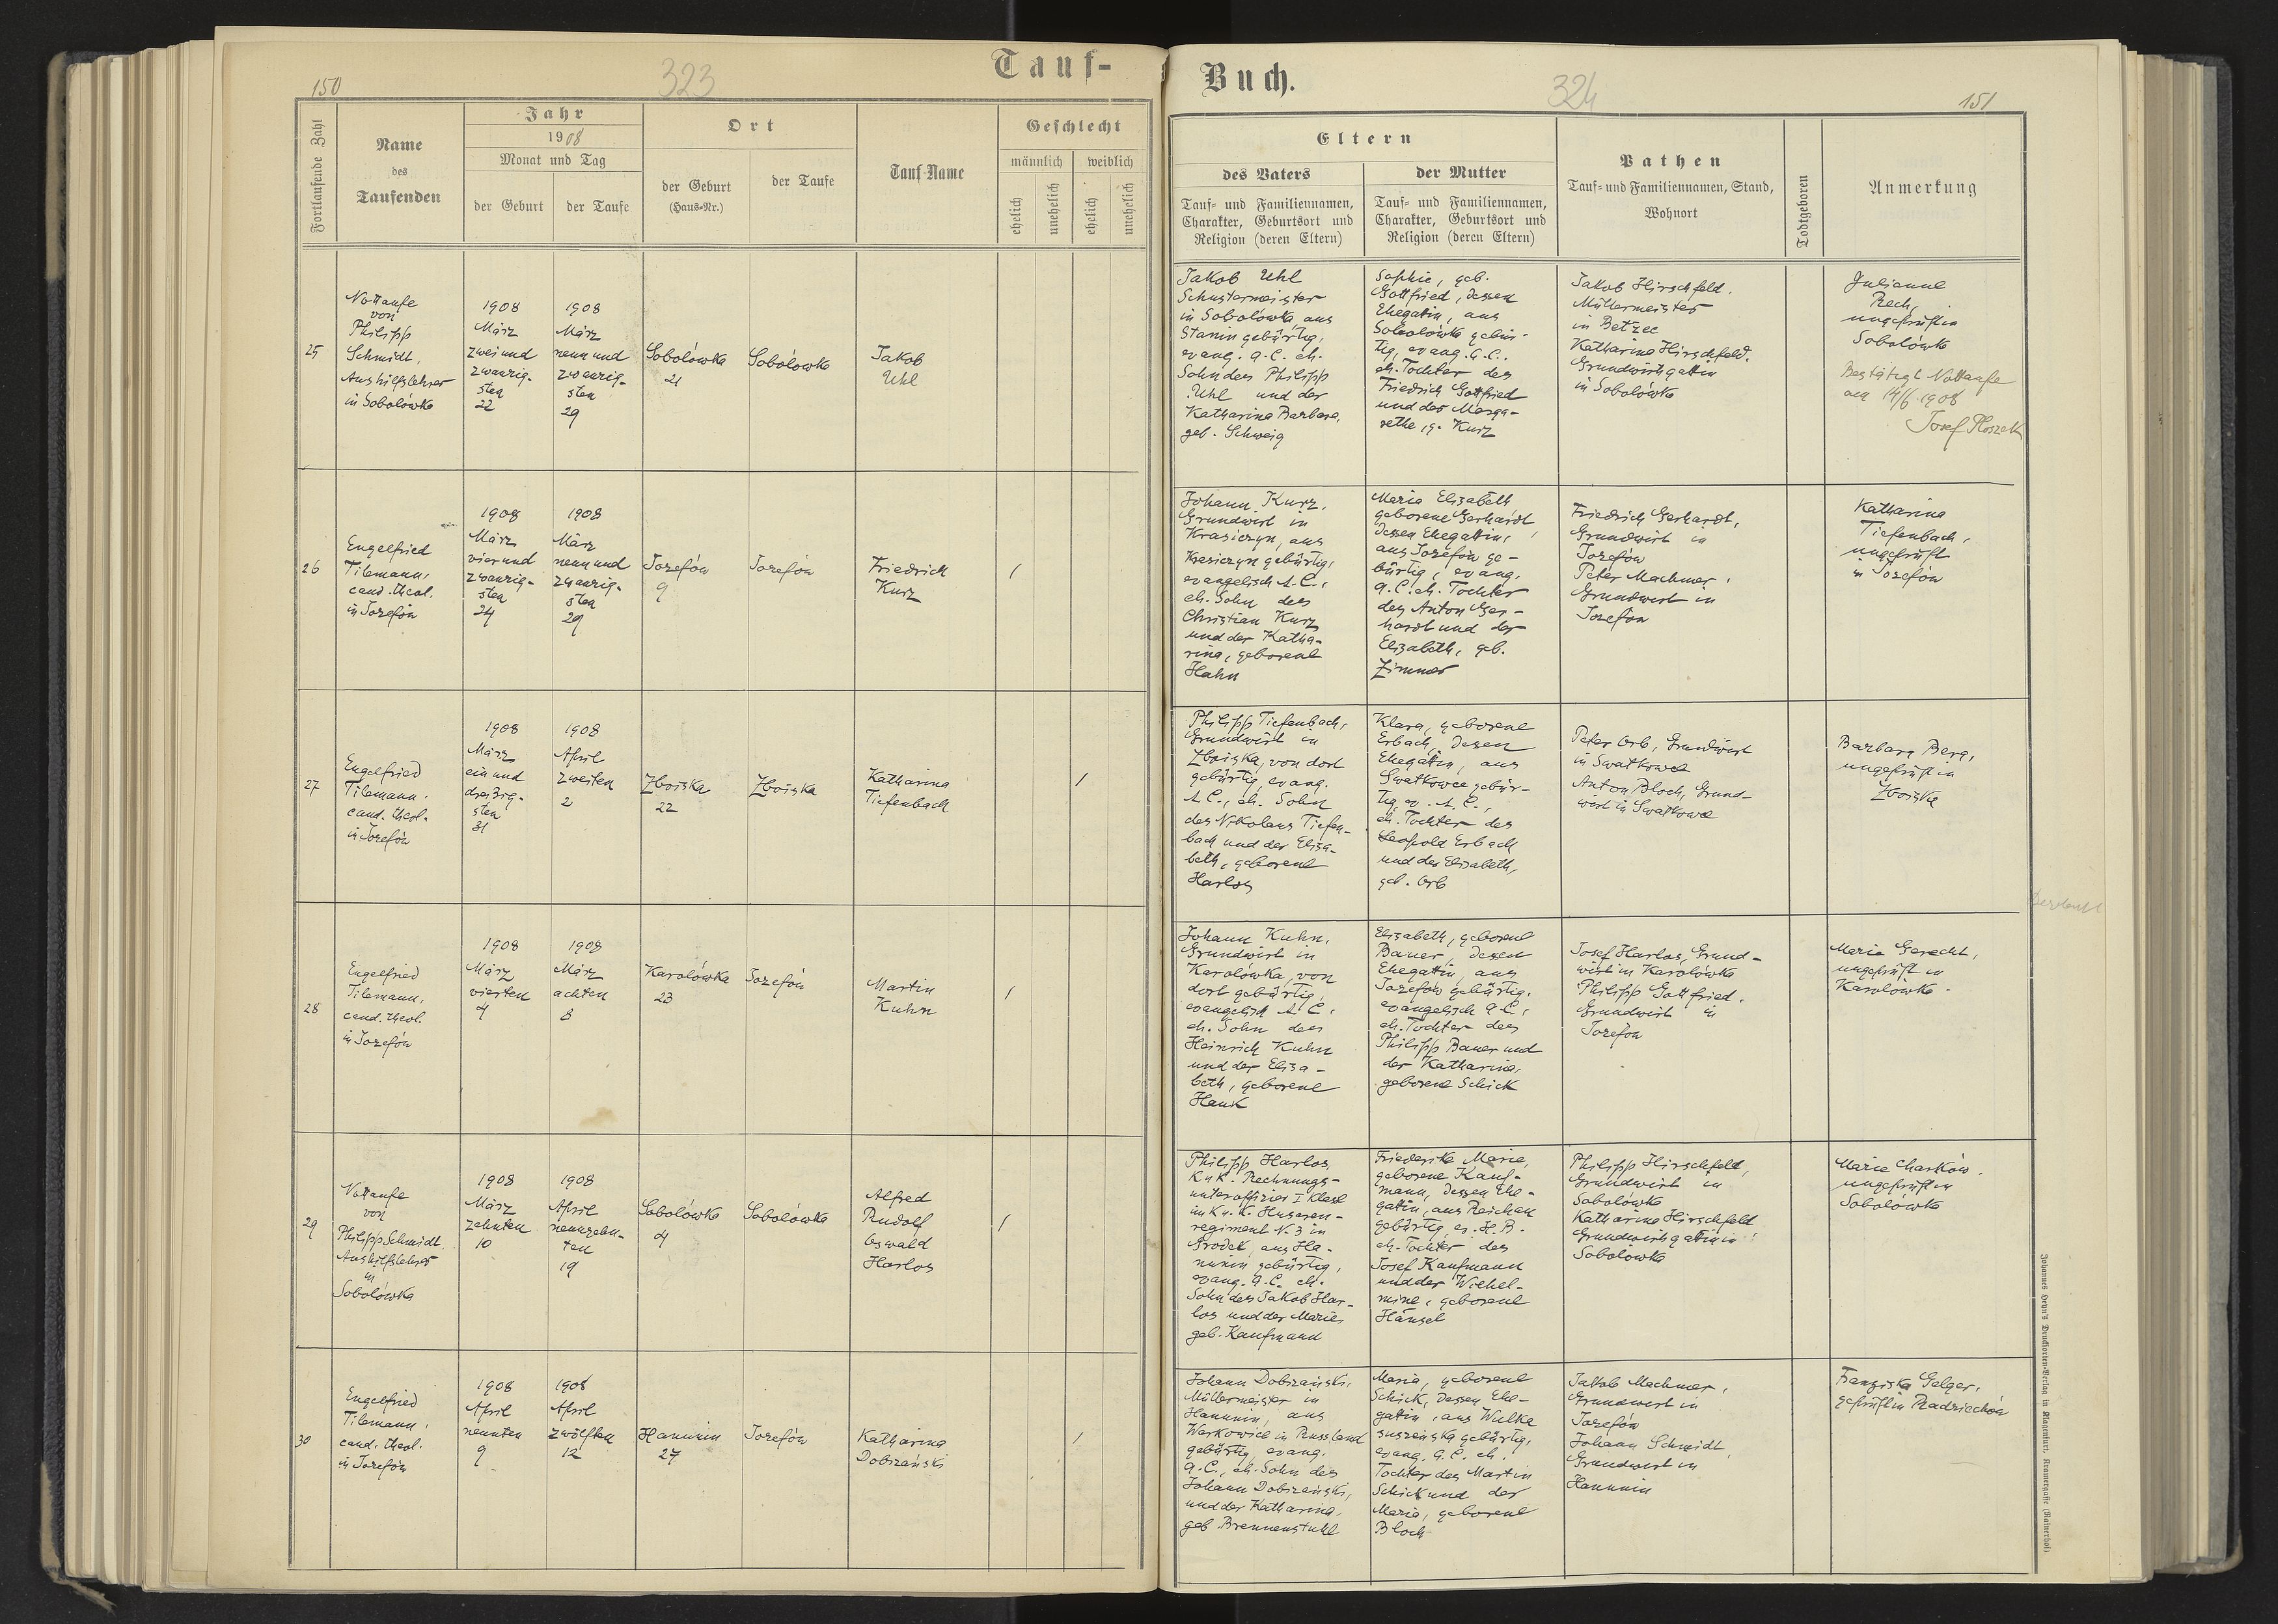 150
323
Tauf-
Fortlaufende Zahl
Name
des
Taufenden
Jahr
1908
Monat und Tag
der Geburt
der Taufe
Ort
der Geburt
(Haus-Nr.)
der Taufe
Tauf-Name
Geschlecht
männlich
weiblich
ehelich
unehelich
ehelich
unehelich
25
Nottaufe
von
Philipp
Schmidt,
Aushilfslehrer
in Sobolówka
1908
März
zweiund
zwanzig-
sten
22
1908
März
neunund
zwanzig-
sten
29
Sobolówka
21
Sobolówka
Jakob
Uhl
26
Engelfried
Tilemann,
cand. theol.
in Józefów
1908
März
vierund
zwanzig-
sten
24
1908
März
neunund
zwanzig-
sten
29
Józefów
9
Józefów
Friedrich
Kurz
/
27
Engelfried
Tilemann,
cand. theol.
in Józefów
1908
März
einund
dreißig-
sten
31
1908
April
zweiten
2
Zboiska
22
Zboiska
Katharina
Tiefenbach
/
28
Engelfried
Tilemann,
cand. theol.
in Józefów
1908
März
vierten
4
1908
März
achten
8
Karolówka
23
Józefów
Martin
Kuhn
/
29
Nottaufe
von
Philipp Schmidt,
Aushilfslehrer
in
Sobolówka
1908
März
zehnten
10
1908
April
neunzehn-
ten
19
Sobolówka
4
Sobolówka
Alfred
Rudolf
Oswald
Harlos
/
30
Engelfried
Tilemann,
cand. theol.
in Józefów
1908
April
neunten
9
1908
April
zwölften
12
Hanunin
27
Józefów
Katharina
Dobrzański
/
Buch.
324
151
Eltern
des Vaters
Tauf- und Familiennamen,
Charakter, Geburtsort und
Religion (deren Eltern)
der Mutter
Tauf- und Familiennamen,
Charakter, Geburtsort und
Religion (deren Eltern)
Pathen
Tauf- und Familiennamen, Stand,
Wohnort
Todtgeboren
Anmerkung
Jakob Uhl
Schustermeister
in Sobolówka aus
Stanin gebürtig,
evang. A.C. eh.
Sohn des Philipp
Uhl und der
Katharina Barbara,
geb. Schweig
Sophie, geb.
Gottfried, dessen
Ehegattin, aus
Sobolówka gebür-
tig, evang. A.C.
eh. Tochter des
Friedrich Gottfried
und der Marga-
rethe, g. Kurz
Jakob Hirschfeld,
Müllermeister
in Bełzec
Katharina Hirschfeld,
Grundwirtsgattin
in Sobolówka
Julianne
Rech,
ungeprüft in
Sobolówka
Bestätigt Nottaufe
am 14/6 1908
Josef Ploszek
Johann Kurz,
Grundwirt in
Krasiczyn, aus
Krasiczyn gebürtig,
evangelisch A.C.,
eh. Sohn des
Christian Kurz
und der Katha-
rina, geborene
Hahn
Maria Elisabeth
geborene Gerhardt,
dessen Ehegattin,
aus Józefów ge-
bürtig, evang.
A.C. eh. Tochter
des Anton Ger-
hardt und der
Elisabeth, geb.
Zimmer
Friedrich Gerhardt,
Grundwirt in
Józefów
Peter Machmer,
Grundwirt in
Józefów
Katharina
Tiefenbach,
ungeprüft
in Józefów
Philipp Tiefenbach,
Grundwirt in
Zboiska, von dort
gebürtig, evang.
A.C., eh. Sohn
des Nikolaus Tiefen-
bach und der Elisa-
beth, geborene
Harlos
Klara, geborene
Erbach, dessen
Ehegattin, aus
Swatkowce gebür-
tig, ev. A.C.,
eh. Tochter des
Leopold Erbach
und der Elisabeth,
geb. Orb
Peter Orb, Grundwirt
in Swatkowce
Anton Bloch, Grund-
wirt in Swatkowce
Barbara Berg,
ungeprüft in
Zboiska
Johann Kuhn,
Grundwirt in
Karolówka, von
dort gebürtig,
evangelisch A.C.,
eh. Sohn des
Heinrich Kuhn
und der Elisa-
beth, geborene
Hauk
Elisabeth, geborene
Bauer, dessen
Ehegattin, aus
Józefów gebürtig,
evangelisch A.C.,
eh. Tochter des
Philipp Bauer und
der Katharina,
geborene Schick
Josef Harlos, Grund-
wirt in Karolówka
Philipp Gottfried,
Grundwirt in
Józefów
Maria Gerecht,
ungeprüft in
Karolówka.
Philipp Harlos,
K u K. Rechnungs-
unteroffizier I Klasse
im K. u. K. Husaren-
regiment N. 3 in
Grodek, aus Ha-
nunin gebürtig,
evang. A.C. eh.
Sohn des Jakob Har-
los und der Marie,
geb. Kaufmann
Friederike Marie,
geborene Kauf-
mann, dessen Ehe-
gattin, aus Reichau
gebürtig, ev. H.B.
eh. Tochter des
Josef Kaufmann
und der Wilhel-
mine, geborene
Hänsel
Philipp Hirschfeld,
Grundwirt in
Sobolówka
Katharina Hirschfeld
Grundwirtsgattin in
Sobolówka
Marie Charków.
ungeprüft in
Sobolówka
Johann Dobrzański,
Müllermeister in
Hanunin, aus
Warkowice in Russland
gebürtig, evang.
A.C., eh. Sohn des
Johann Dobrzański,
und der Katharina,
geb. Brennenstuhl
Maria, geborene
Schick, dessen Ehe-
gattin, aus Wulka
suszeńska gebürtig,
evang. A.C. eh.
Tochter des Martin
Schick und der
Maria, geborene
Bloch
Jakob Machmer,
Grundwirt in
Józefów
Johann Schmidt,
Grundwirt in
Hanunin
Franziska Gelger,
geprüft in Radziechów
Johannes Heyn's Drucksorten-Verlag in Klagenfurt, Kramergasse (Rainerhof)